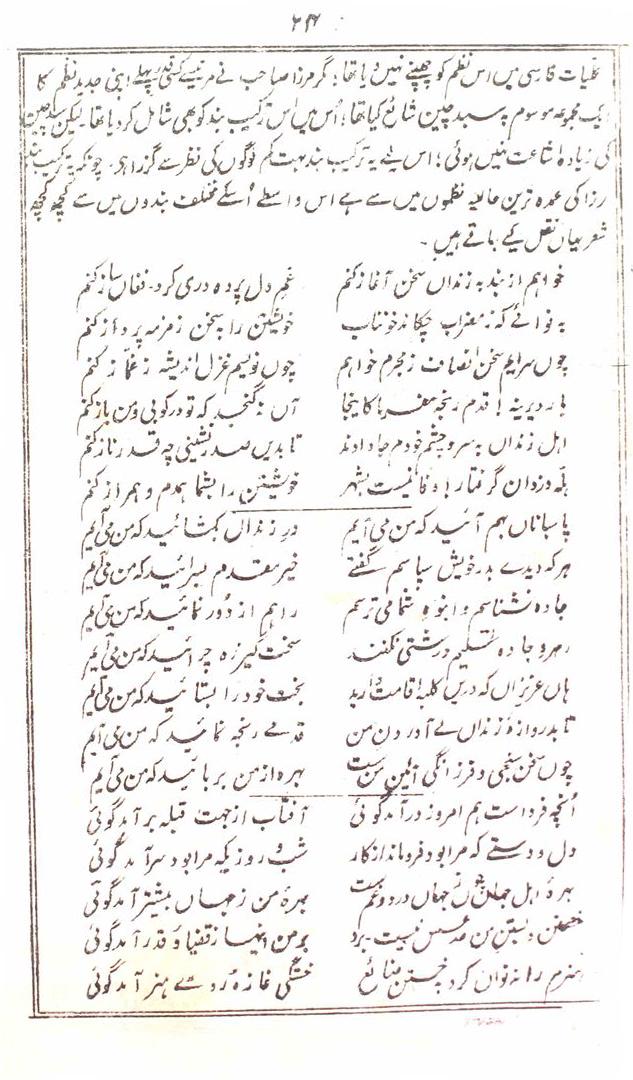 ۲۴
کلیات فارسی میں اس نظم کو چھپنے نہیں دیا تھا؛ مگر مرزا صاحب نے مرنیسے کسی قدر پہلے اپنی جدید نظم کا
ایک مجموعہ موسوم بہ سبد چین شائع کیا تھا؛ اُس میں اس ترکیب بند کو بھی شامل کر دیا تھا لیکن سبد چین
کی زیادہ اشاعت نہیں ہوئی؛ اس لیے یہ ترکیب بند بہت کم لوگوں کی نظر سے گزرا ہو۔ چونکہ یہ ترکیب بند
رزا کی عمدہ ترین حالیہ نظموں میں سے ہے اس واسطے اُسکے مختلف بندوں میں سے کچھ کچھ
شعر یہاں نقل کیے جاتے ہیں۔
خواہم از بند بہ زنداں سخن آغاز کنم غمِ دل پردہ دری کرد۔ فغاں ساز کنم
بہ نوائے کہ ز مضراب چکاند خوناب خویشتن را بسخن زمزمہ پرداز کنم
چوں سرایم سخن انصاف ز مجرم خواہم چوں نویسم غزل اندیشہ ز غماز کنم
یار دیرینہ قدم رنجہ مفرما کاینجا آں نگنجد کہ تو در کوبی و من باز کنم
اہل زنداں بہ سر و چشم خودم جا دادند تا بدیں صدر نشینی چہ قدر ناز کنم
ہلہ دزدان گرفتار وفا نیست بشہر خویشتن را بشما ہمدم و ہمراز کنم
پاسباناں بہم آئید کہ من می آیم درِ زنداں بکشائید کہ من می آیم
ہر کہ دیدے بدر خویش سپاسم گفتے خیر مقدم بسرائید کہ من می آیم
جادہ نشناسم و انبوہِ شما می ترسم راہم از دُور نمائید کہ من می آیم
رہرو جادہ تسلیم درشتی نکنند سخت گیرندہ چرائید کہ من می آیم
ہاں عزیزاں کہ دریں کلبہ اقامت دارید بخت خود را بستائید کہ من می آیم
تا بدروازۂ زنداں پے آوردن من قدمے رنجہ نمائید کہ من می آیم
چوں سخن سنجی و فرزانگی آئین من ست بہرہ از من بربائید کہ من می آیم
آنچہ فرداست ہم امروز در آمد گوئی آفتاب از جہت قبلہ بر آمد گوئی
دل و دستے کہ مرا بود فروماند از کار شب و روزیکہ مرا بود سرآمد گوئی
بہرۂ اہل جہاں چوں ز جہاں درد و غم ست بہرۂ من ز جہاں بیشتر آمد گوئی
خستن و بستن من عسس نیست۔ برد بر من اینہا ز قضا و قدر آمد گوئی
ہنرم را نتواں کرد بخستن ضائع خستگی غازۂ روے ہنر آمد گوئی